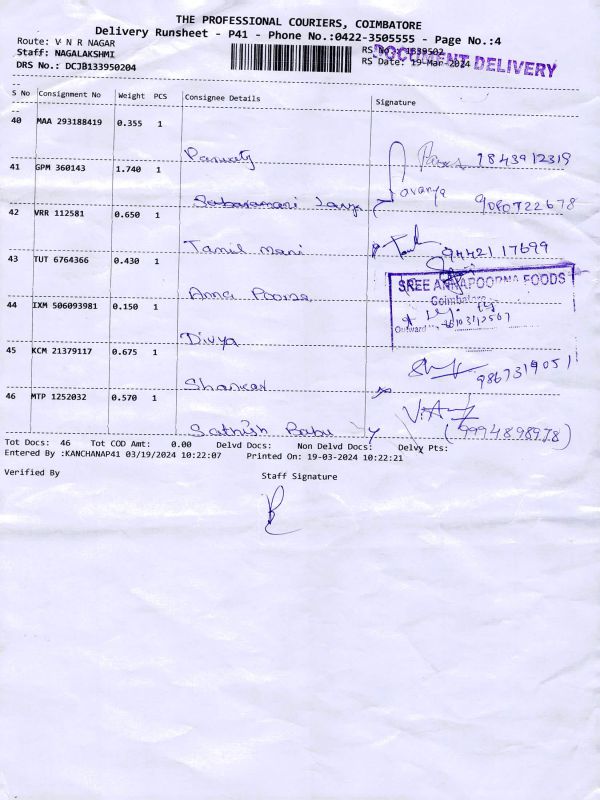 THE PROFESSIONAL COURIERS, COIMBATORE
Delivery Runsheet - P41 - Phone No.:0422-3505555 - Page No.:4
Route: V N R NAGAR
RS No.: 1839502
Staff: NAGALAKSHMI
DOCUMENT DELIVERY
DRS No.: DCJB133950204
RS Date: 19-Mar-2024
S No Consignment No Weight PCS Consignee Details Signature
40 MAA 293188419 0.355 1
Parvaty 9843912319
41 GPM 360143 1.740 1
Sabaramani Lavya Lavanya 9080722678
42 VRR 112581 0.650 1
Tamil mani 94421 17699
43 TUT 6764366 0.430 1
Anna Poorna
SREE ANNAPOORNA FOODS
Coimbatore
Outward
44 IXM 506093981 0.150 1
Divya
45 KCM 21379117 0.675 1
Shankar 9867319051
46 MTP 1252032 0.570 1
Sathish Babu (9994898978)
Tot Docs: 46 Tot COD Amt: 0.00 Delvd Docs: Non Delvd Docs: Delvy Pts:
Entered By :KANCHANAP41 03/19/2024 10:22:07 Printed On: 19-03-2024 10:22:21
Verified By Staff Signature